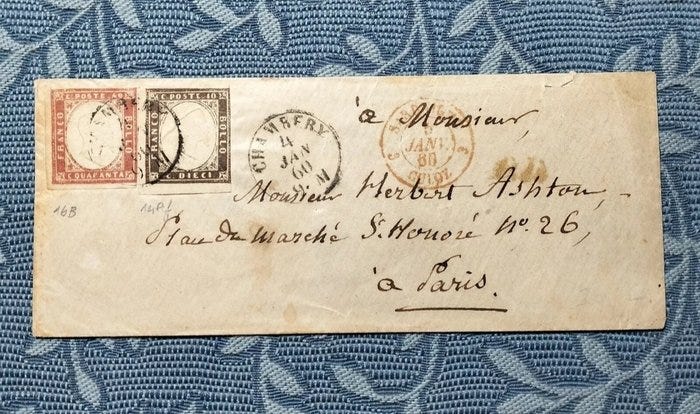 C. POSTE 40
FRANCO
BOLLO
C. QUARANTA
C. POSTE 10
FRANCO
BOLLO
C. DIECI
CHAMBERY
4
JAN
60
M
JANV.
60
CULOZ
3
3
P.D.
à Monsieur,
Monsieur Herbert Ashton,
Place du marché St. Honoré No. 26,
à Paris.
16B